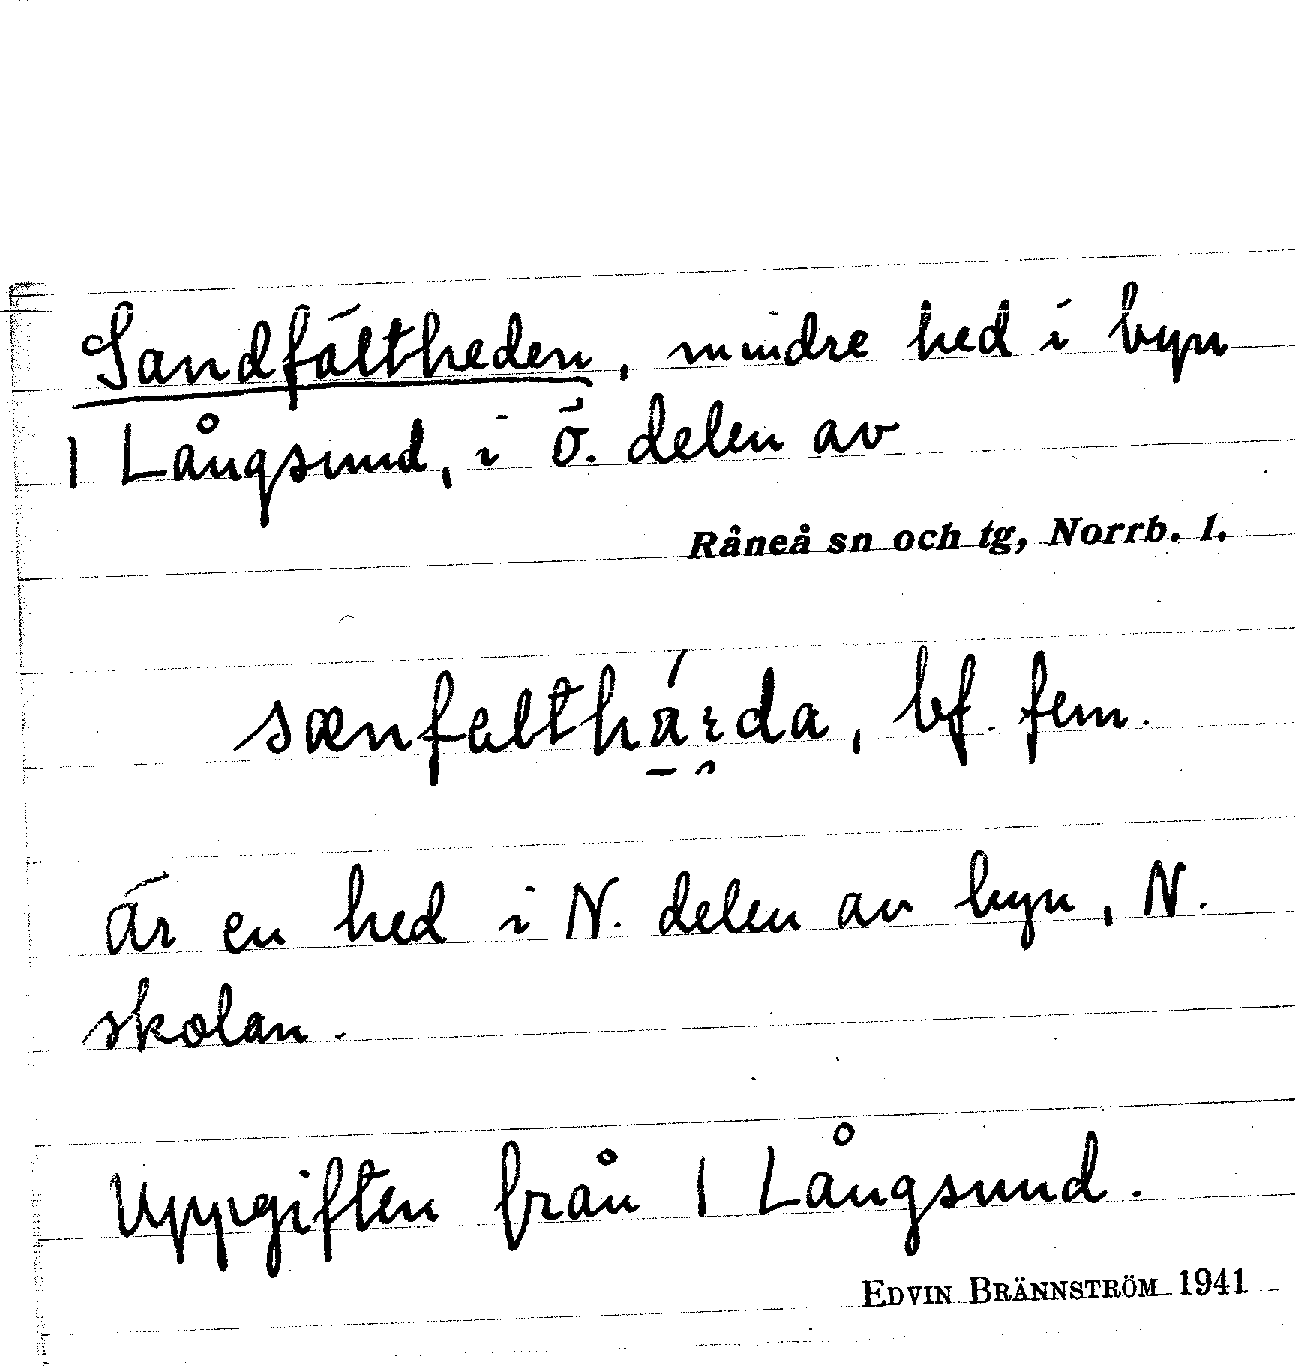 Sandfältheden, mindre hed i byn
1 Långsund, i ö. delen av
Råneå sn och tg, Norrb. l.
sænfælthá̱ɽda, bf. fem.
är en hed i N. delen av byn, N.
skolan.
Uppgiften från 1 Långsund.
EDVIN BRÄNNSTRÖM 1941